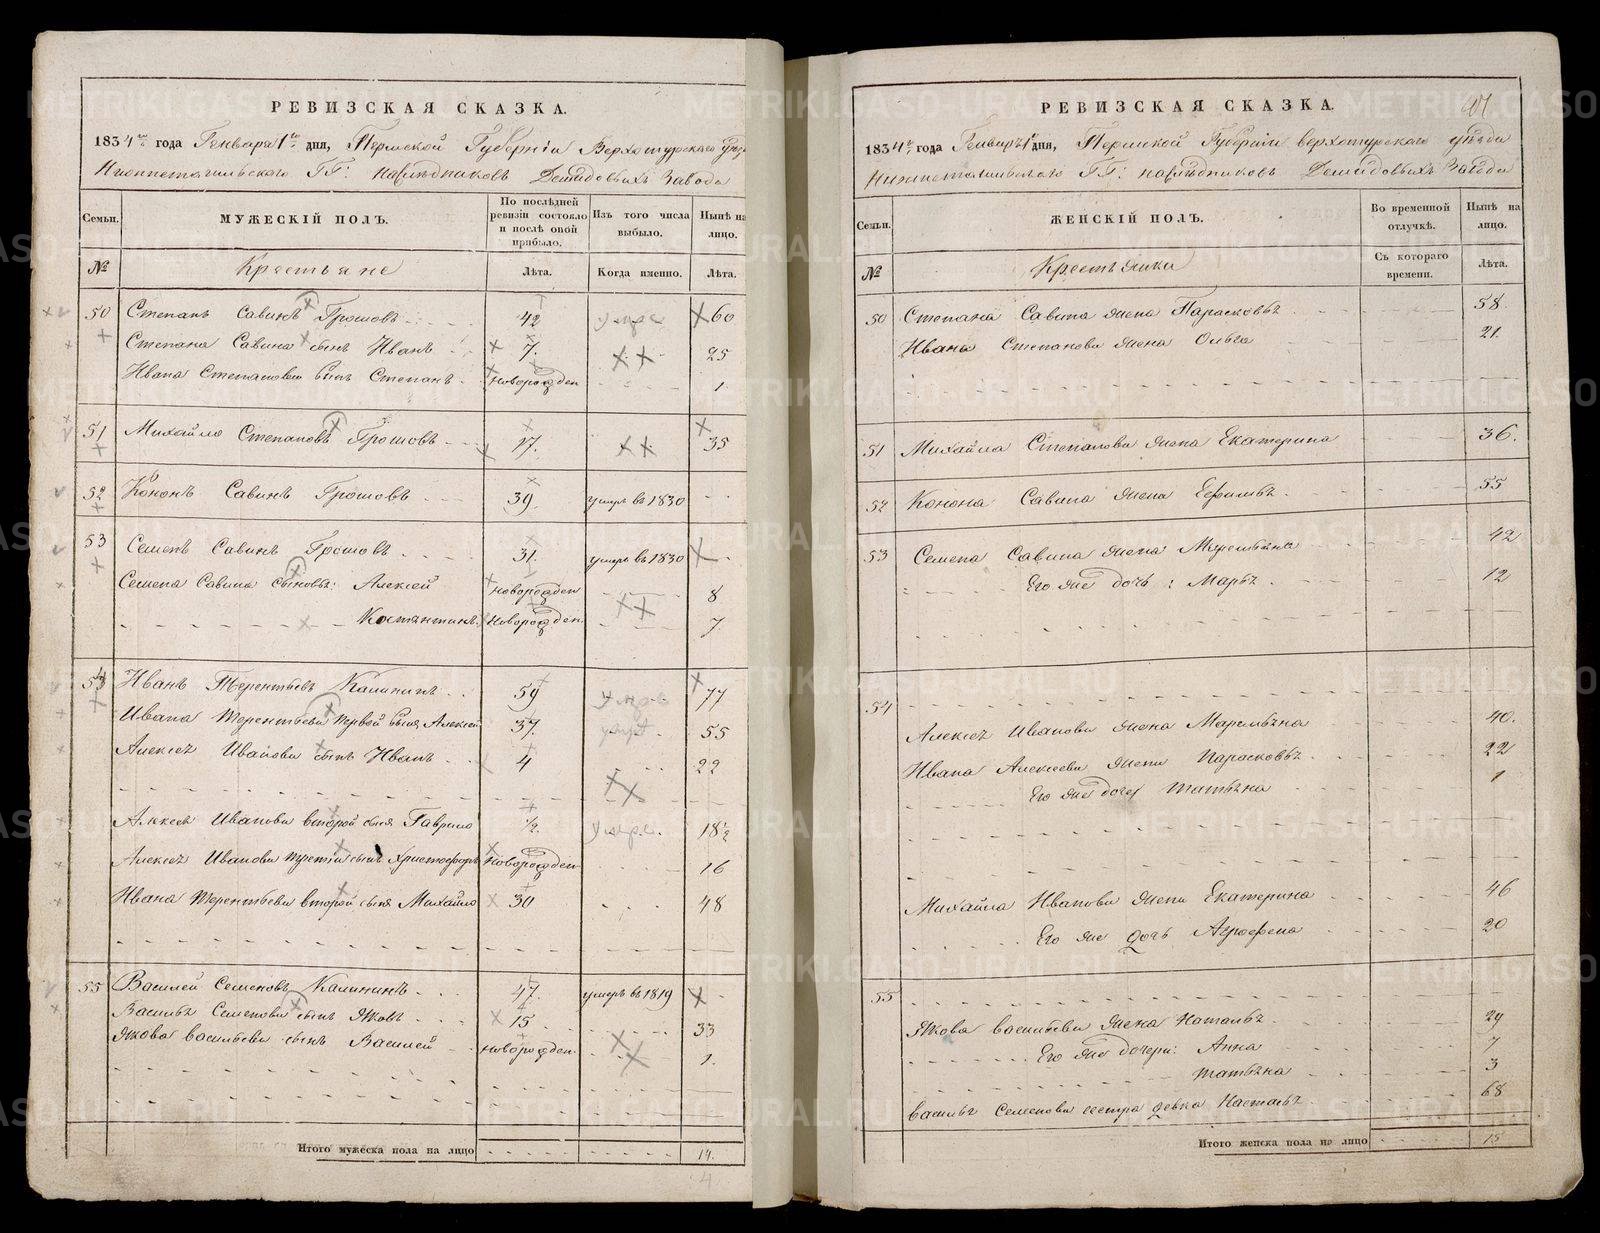 РЕВИЗСКАЯ СКАЗКА.
1834го года Генваря 1го дня, Пермской Губерніи Верхотурскаго
Нижнетагильского ГГ: наслѣдниковъ Демидовыхъ Завода
Семьи. МУЖЕСКІЙ ПОЛЪ. По послѣдней ревизіи состояло и послѣ оной прибыло. Изъ того числа выбыло. Нынѣ на лицо.
№ Крестьяне Лѣта. Когда именно. Лѣта.
50 Степанъ Савинъ Грошовъ 42 умре 60
Степана Савина сынъ Иванъ 7. 25
Ивана Степанова сынъ Степанъ новорожден 1
51 Михайло Степановъ Грошовъ 17. 35
52 Кононъ Савинъ Грошовъ 39 умеръ въ 1830
53 Семенъ Савинъ Грошовъ 31. умеръ въ 1830
Семена Савина сыновья: Алексей новорожден 8
Костянтинъ новорожден 7
54 Иванъ Терентьевъ Калининъ 59 умре 77
Ивана Терентьева первой сынъ Алексей 37. умре 55
Алексея Иванова сынъ Иванъ 4 22
Алексея Иванова второй сынъ Гаврило 1/2. умре. 18 1/2
Алексея Иванова третій сынъ Христофоръ новорожден 16
Ивана Терентьева второй сынъ Михайло 30 48
55 Василей Семеновъ Калининъ 47. умеръ въ 1819
Василья Семенова сынъ Яковъ 15 33
Якова Васильева сынъ Василей новорожден 1.
Итого мужеска пола на лицо 14.
4
РЕВИЗСКАЯ СКАЗКА.
1834го года Генваря 1 дня, Пермской Губерніи верхотурскаго уѣзда
Нижнетагильского ГГ: наслѣдниковъ Демидовыхъ Завода
Семьи. ЖЕНСКІЙ ПОЛЪ. Во временной отлучкѣ. Нынѣ на лицо.
№ Крестьянки Съ котораго времени. Лѣта.
50 Степана Савина жена Парасковья 58
Ивана Степанова жена Ольга 21.
51 Михайла Степанова жена Екатерина 36.
52 Конона Савина жена 55
53 Семена Савина жена Маремьяна 42
Его же дочь: Марья 12
54
Алексея Иванова жена Маремьяна 40.
Ивана Алексеева жена Парасковья 22
Его же дочь Татьяна 1
Михайла Иванова жена Екатерина 46
Его же дочь Агрофена 20
55
Якова васильева жена Наталья 29
Его же дочери: Анна 7
Татьяна 3
василья Семенова сестра девка Насталья 68
Итого женска пола на лицо 15
METRIKI.GASO-URAL.RU